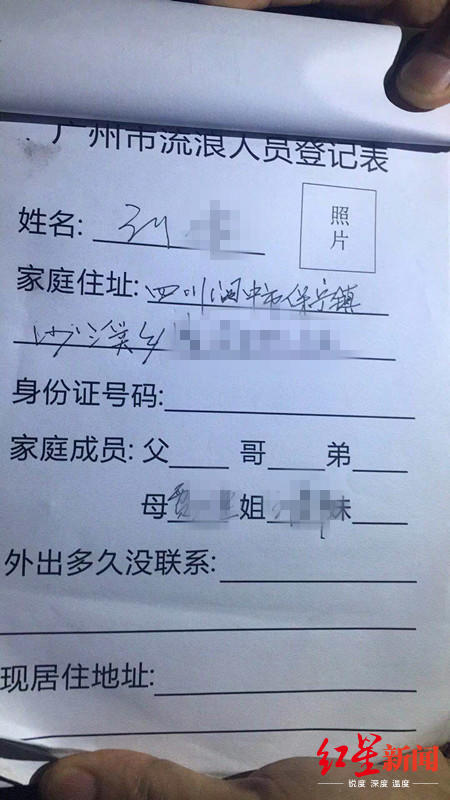 广州市流浪人员登记表
姓名: 刘
照片
家庭住址: 四川阆中市保宁镇
沙溪乡
身份证号码:
家庭成员: 父 哥 弟
母 贾 姐 妹
外出多久没联系:
现居住地址:
红星新闻
锐度 深度 温度